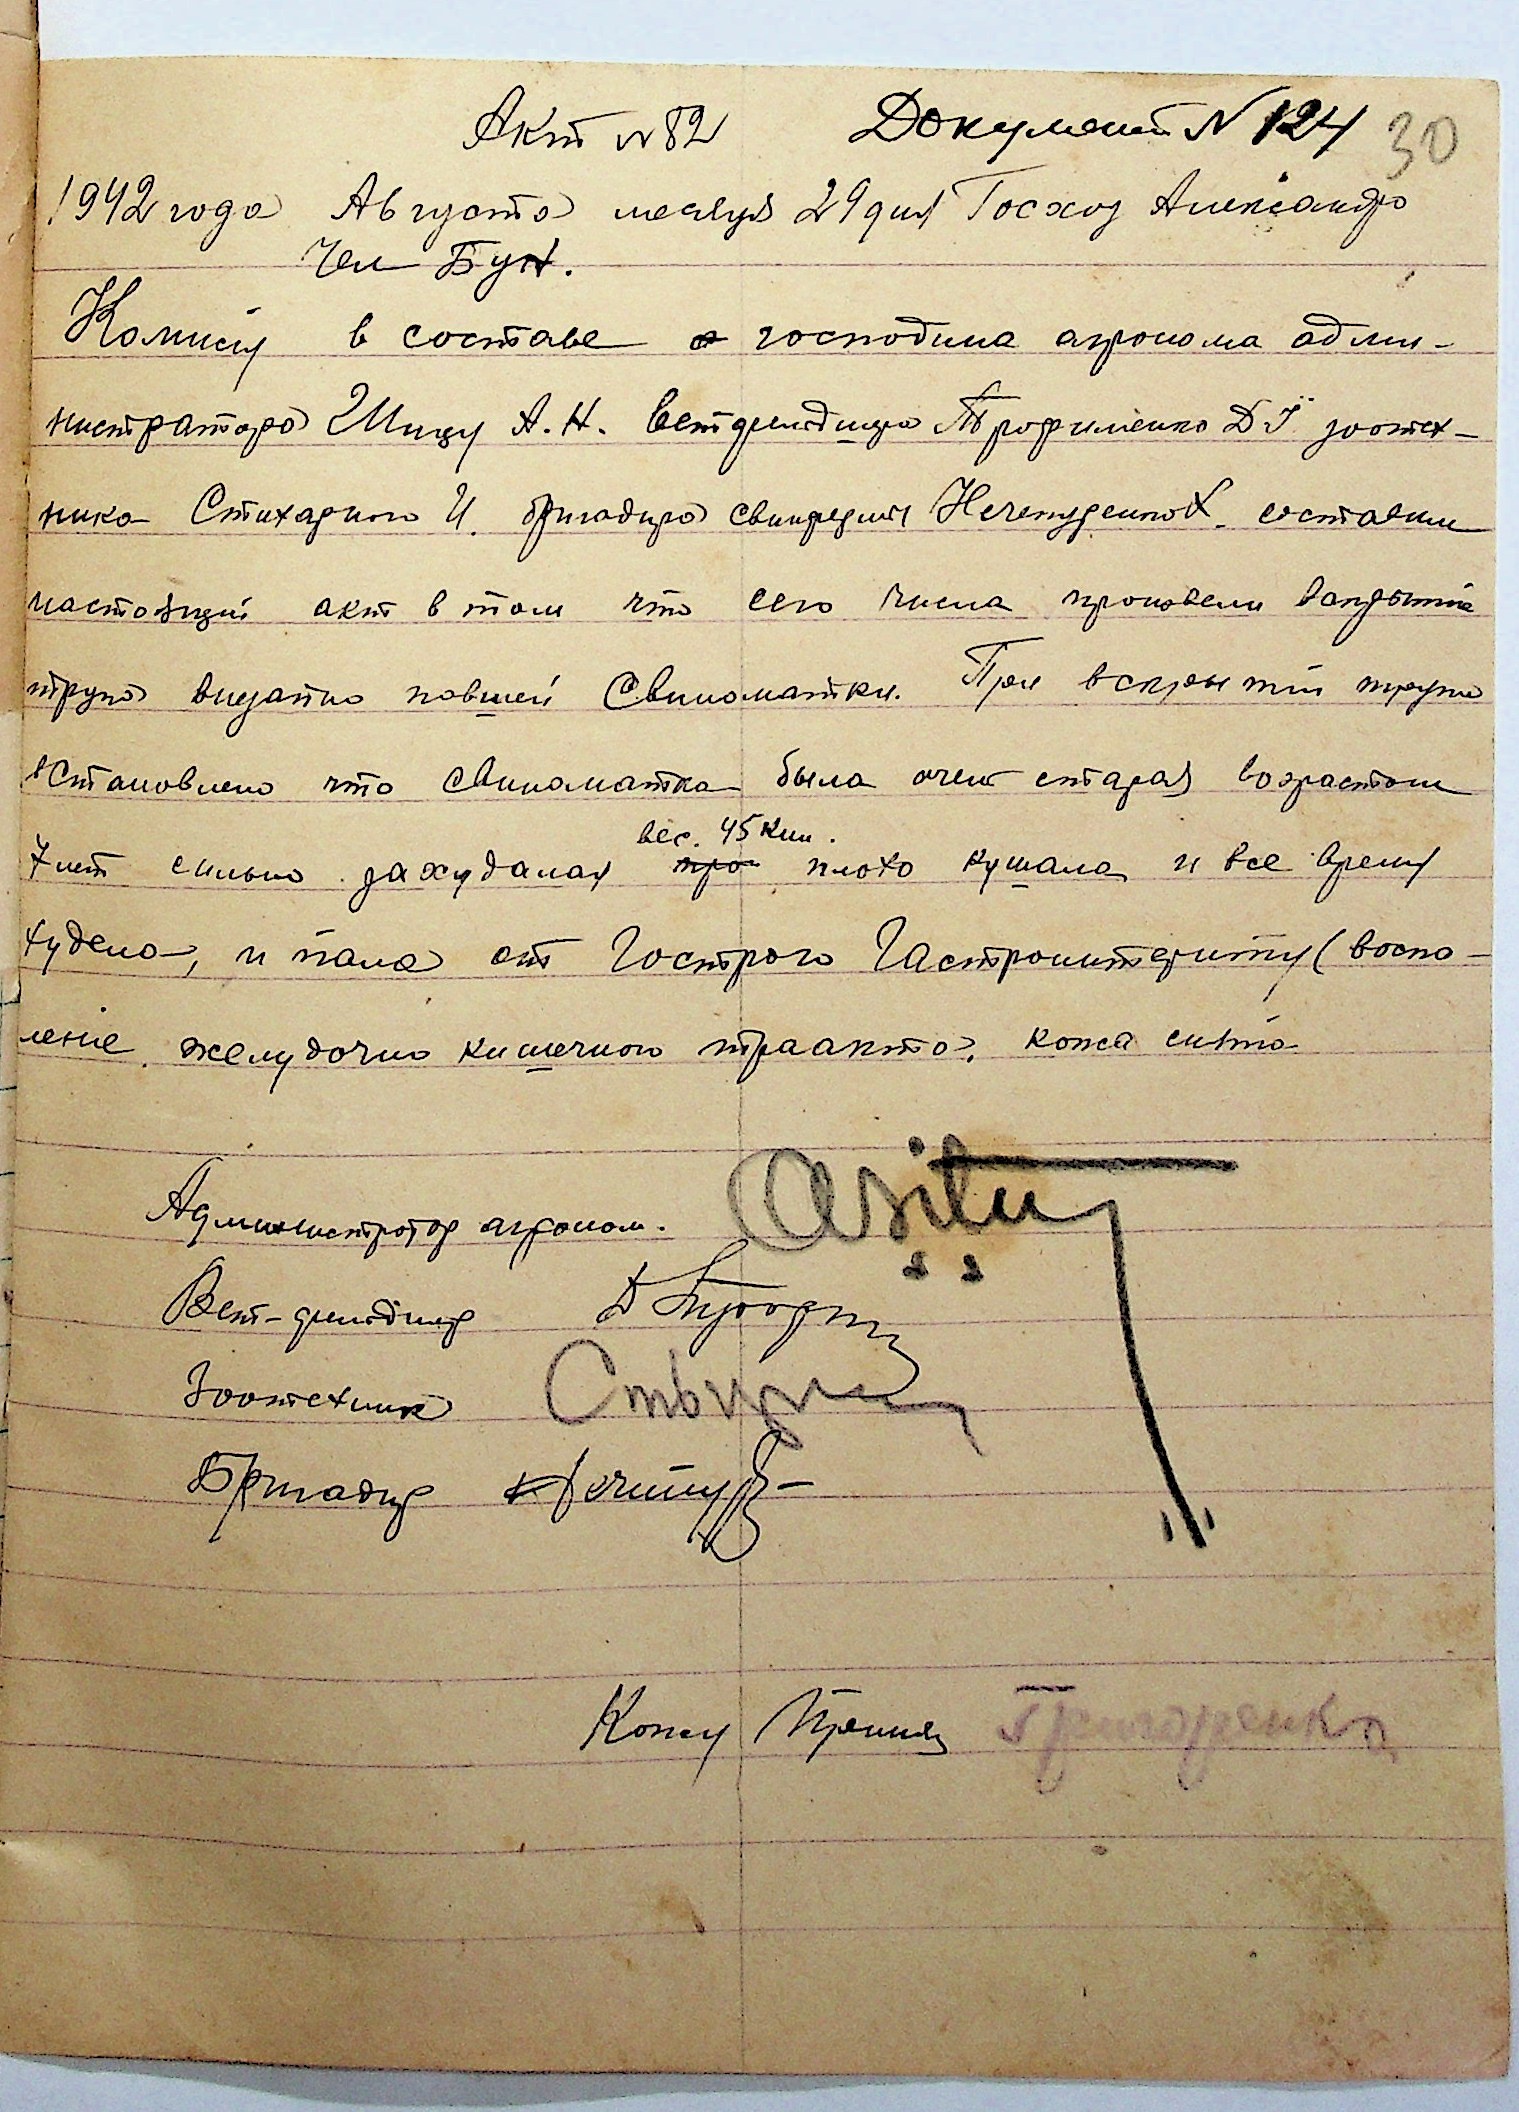 Акт № 82 Документ № 124 30
1942 года Августа месяця 29 дня Госхоз Александро
Чел Бун.
Комисия в составе господина агронома адми-
нистратора Шицу А.Н. Ветфельдшера Трофименко Д.Ї зоотех-
ника Стихарного И. бригадира свинофермы Нечепуренко Х. составили
настоящий акт в том что сего числа произвели вскрытие
трупа внезапно павшей Свиноматки. При вскрытии трупа
встановлено что свиноматка была очень старая возрастом
вес. 45 кил.
7 лет сильно захуданая про плохо кушала и все время
худела, и пала от Гострого Гастроинтериту (воспо-
ление желудочно кишечного траакта. кожа снята
Администратор агроном.
Вет-фельдшер
Зоотехник
Бригадир
Кожу Принял Григоренко